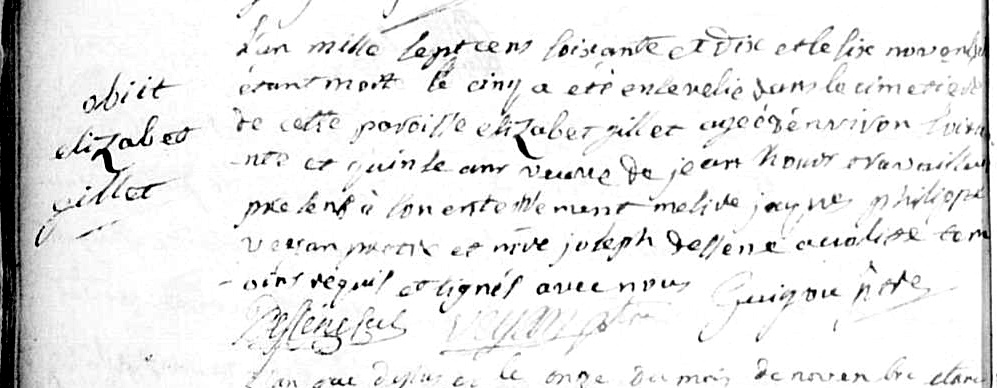 obiit
elizabet
gillet
L'an mille sept cens soixante et dix et le six novembre
étant morte le cinq a été ensevelie dans le cimetiere
de cette paroisse elizabet gillet agée d'environ soixa
-nte et quinse ans veuve de jean travailleur
presens à son enterrement mesire jaques philippe
veyan pretre et mre joseph dessene acolitte tem
-oins requis et signés avec nous Guigou
veyan ptre
l'an que dessus et le onze du mois de novembre etant